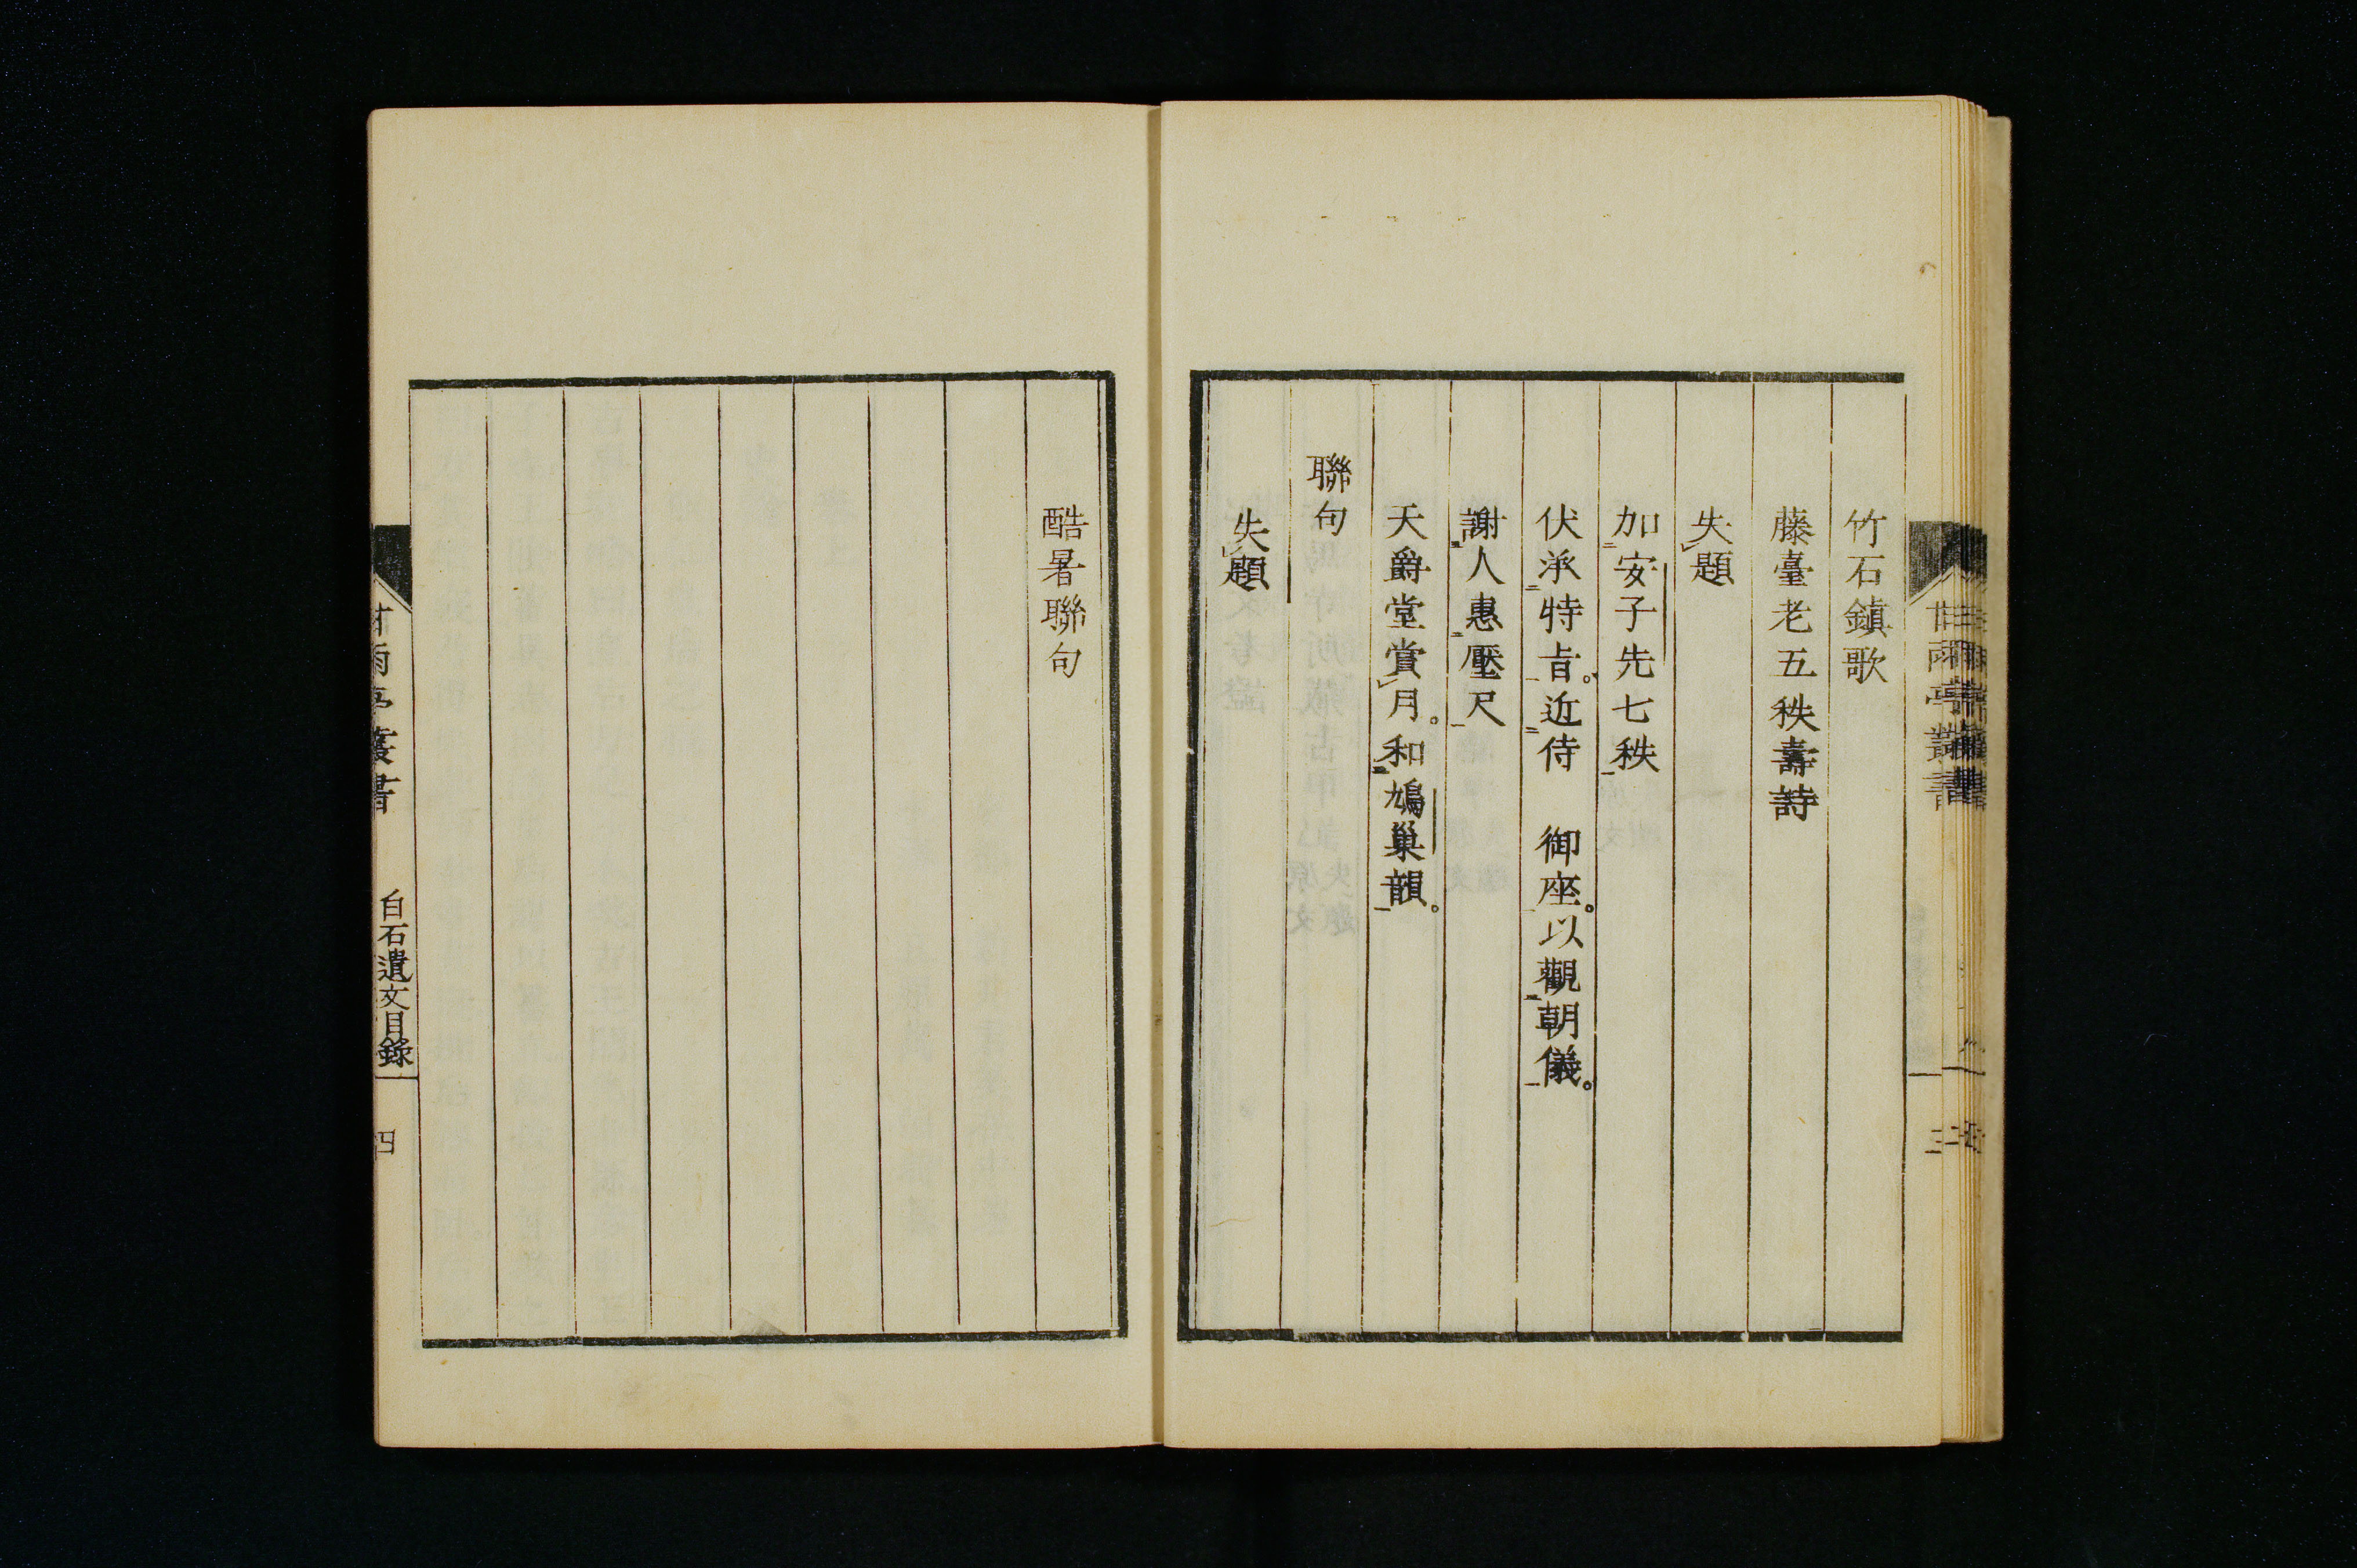 竹石鎮歌
藤臺老五秩壽詩
失題
加安子先七秩
伏承特旨。近侍　御座。以觀朝儀。
謝人惠壓尺
天爵堂賞月。和鳩巢韻。
聯句
失題
酷暑聯句
甘雨亭叢書
白石遺文目錄
四
甘雨亭叢書
三